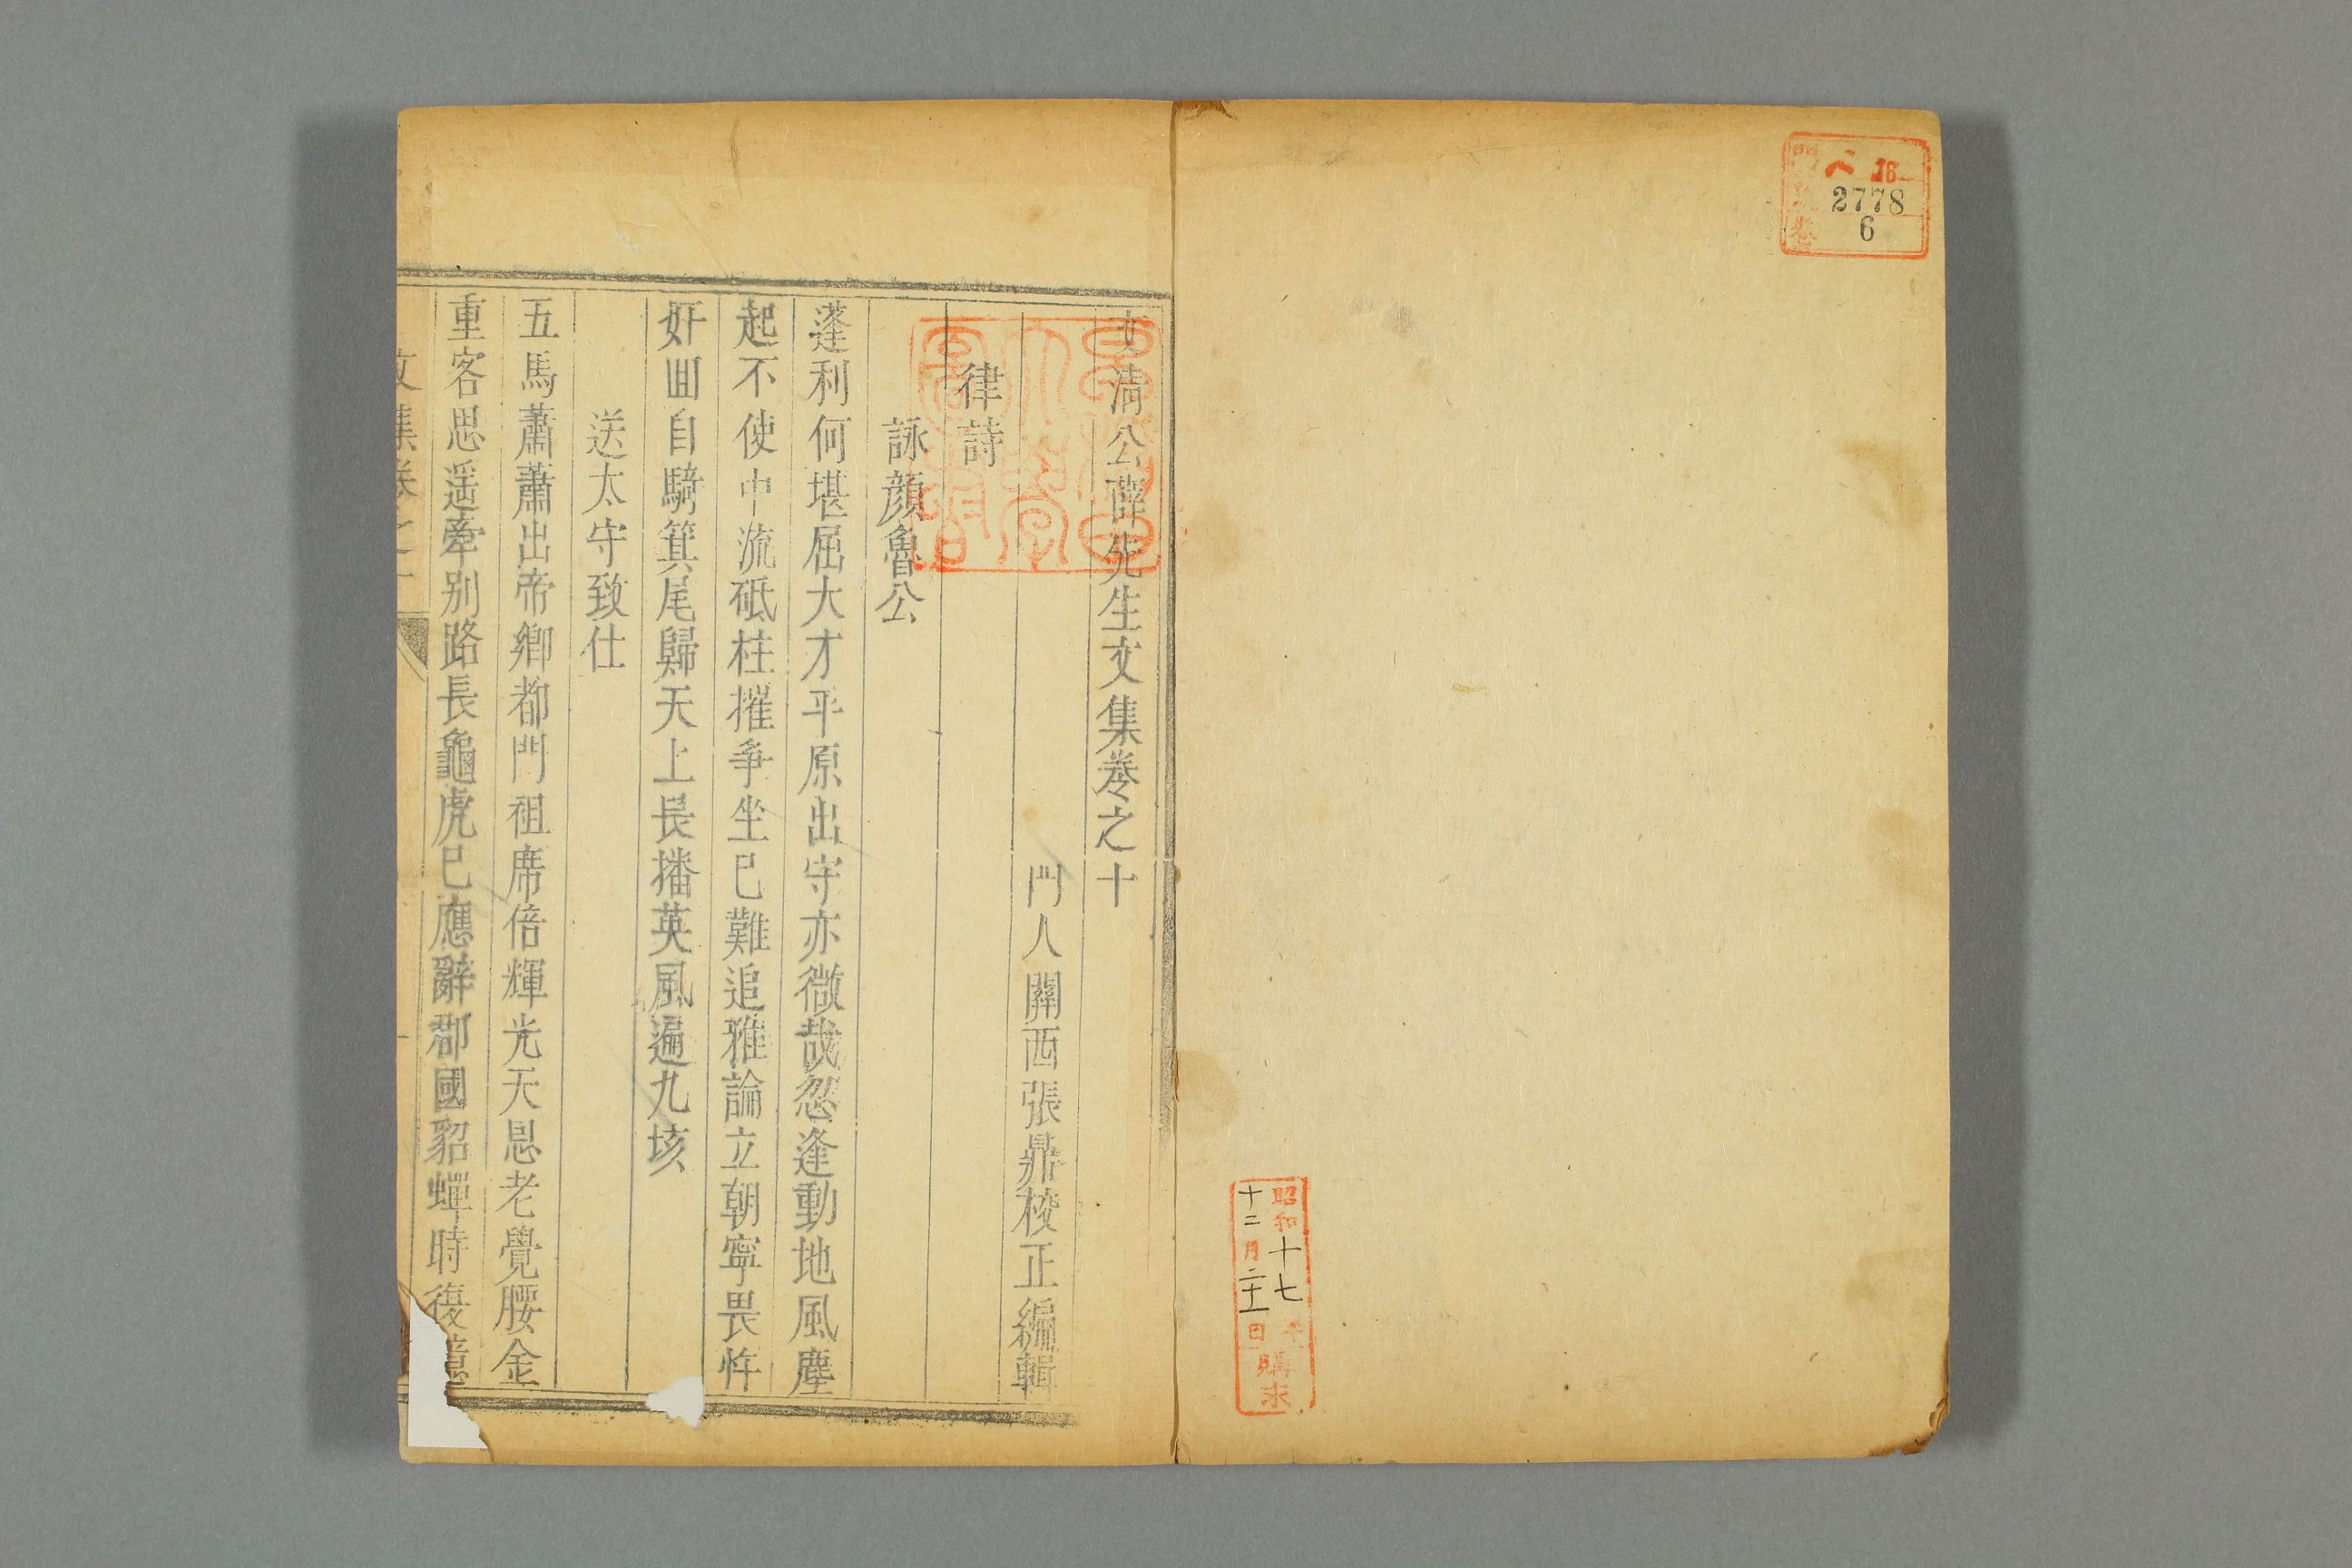 門 ヘ 16
號 2778
卷 6
昭和十七年
十二月二十一日
購求
文清公薛先生文集卷之十
門人關西張鼎校正編輯
律詩
詠顏魯公
蓬利何堪屈大才平原出守亦微哉忽逢動地風塵
起不使中流砥柱摧爭坐已難追雅論立朝寧畏忤
奸回自騎箕尾歸天上長播英風遍九垓
送太守致仕
五馬蕭蕭出帝鄉都門祖席倍輝光天恩老覺腰金
重客思遥牽别路長龜虎已應辭郡國貂蟬時復
文集卷之十